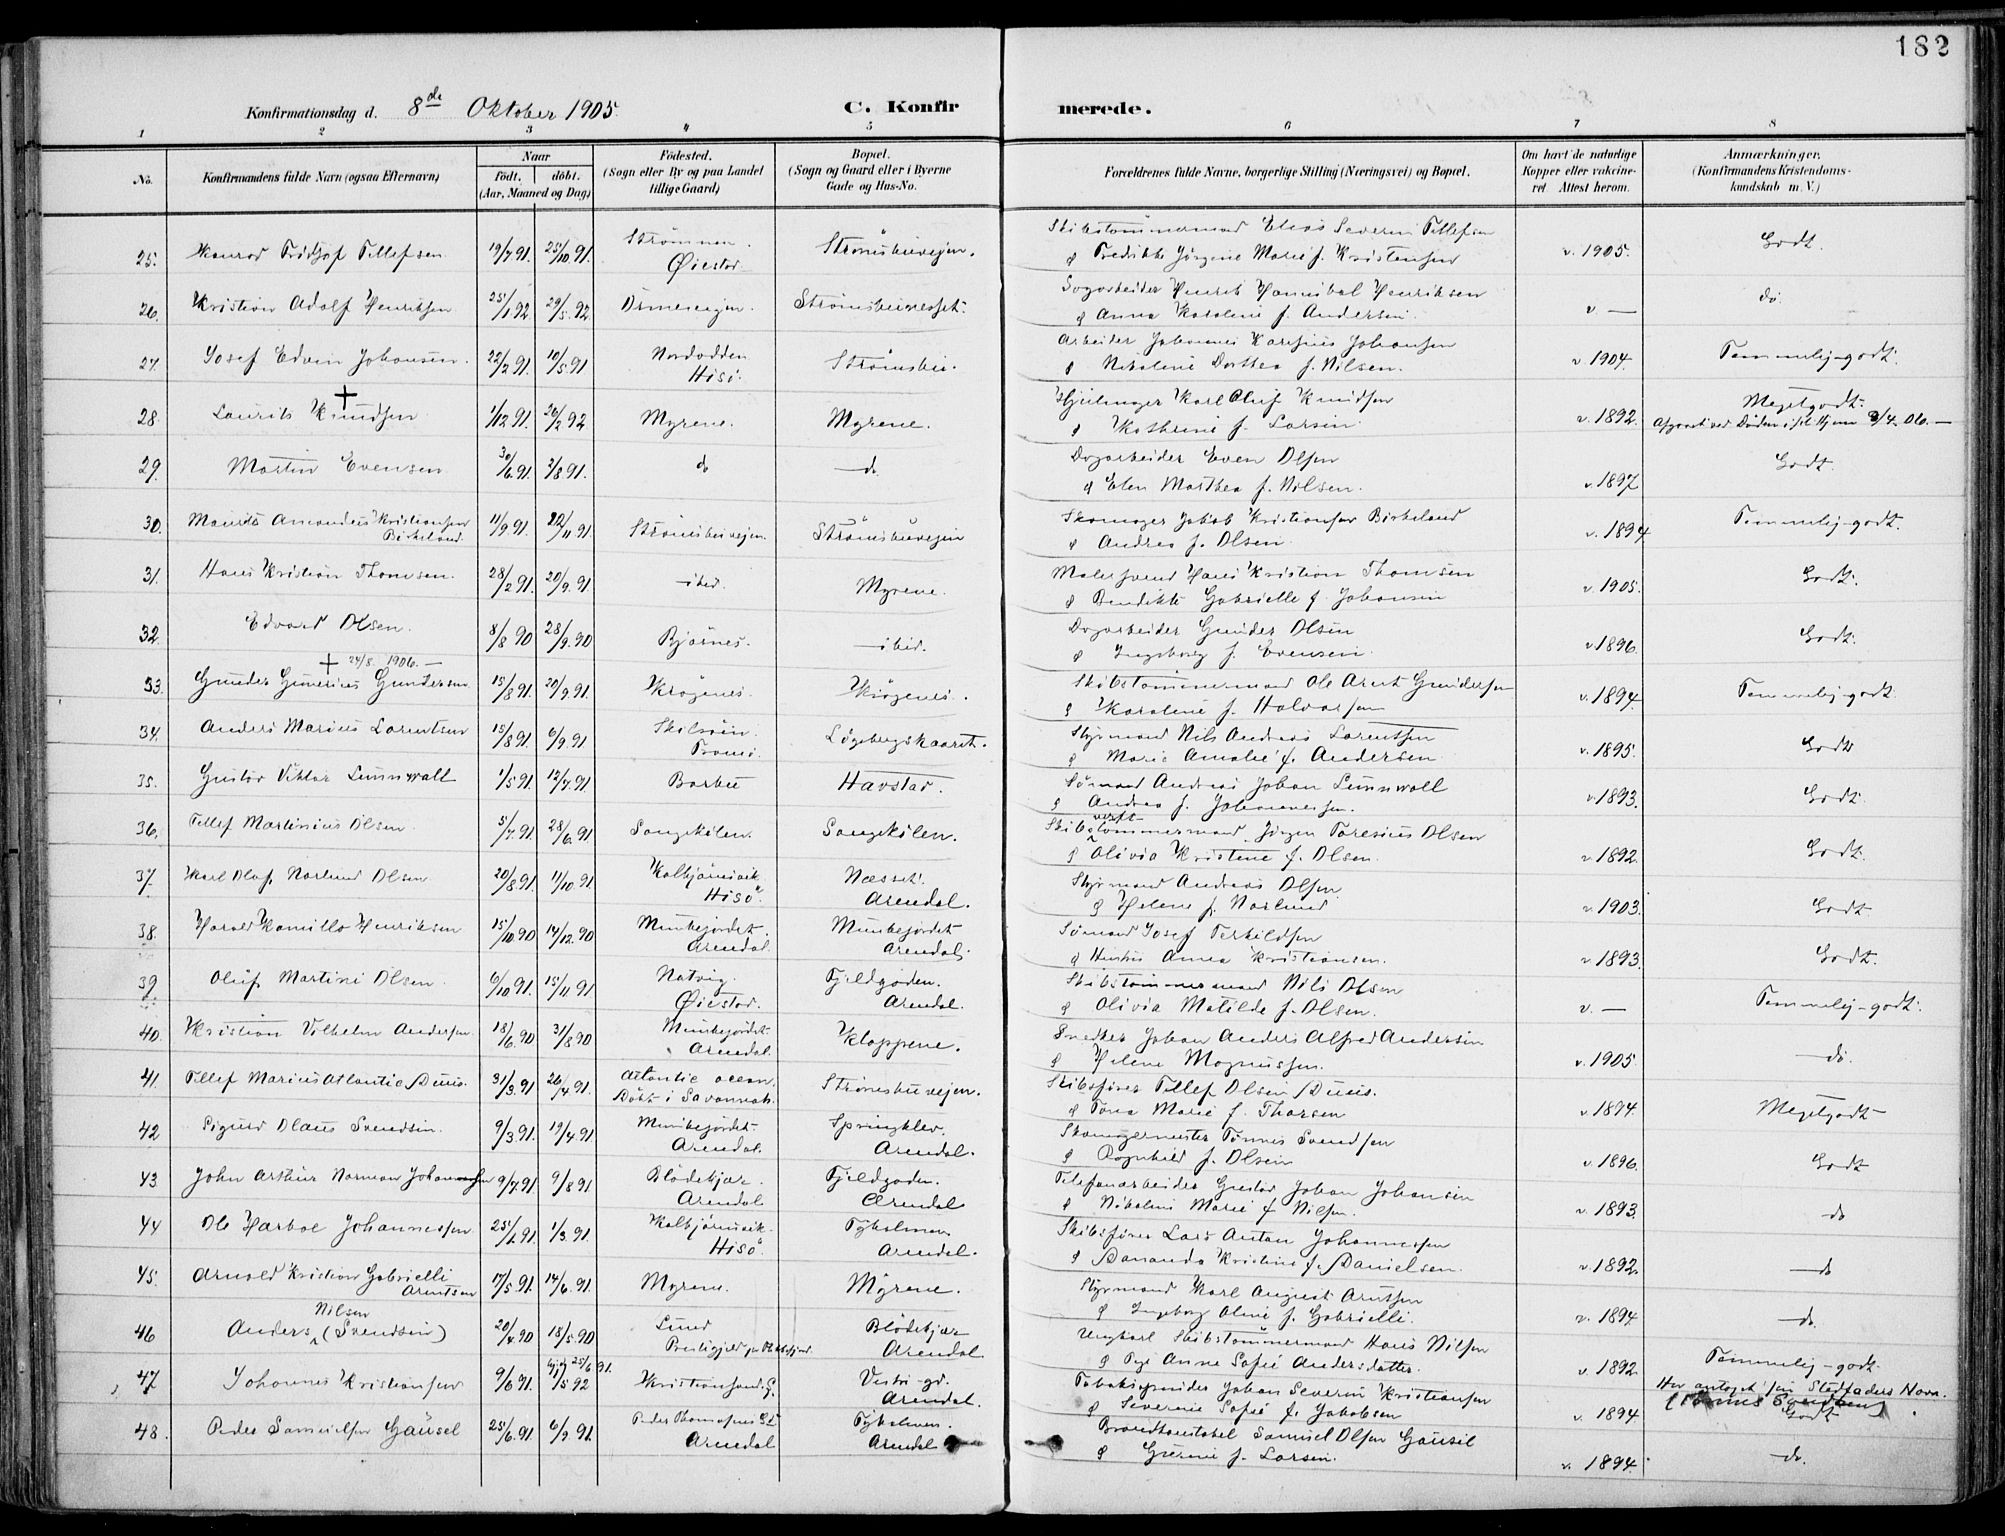 182
Konfirmationsdag d. 8de Oktober 1905. C. Konfir merede.
1 2 3 4 5 6 7 8
No. Konfirmandens fulde Navn (ogsaa Efternavn) Naar født, døbt. (Aar, Maaned og Dag) Fødested. (Sogn eller By og paa Landet tillige Gaard) Bopæl. (Sogn og Gaard eller i Byerne Gade og Hus-No. Forældrenes fulde Navne, borgerlige Stilling (Næringsvei) og Bopæl. Om havt de naturlige Kopper eller vaccineret. Attest herom. Anmærkninger. (Konfirmandens Kristendomskundskab m. V.)
Strømmen. Skibstømmermand Elias Severin Tellefsen
25. Konrad Tellefsen 19/7 91. 25/10 91. Øiestad. Strømsbuvejen. & Fredrikke Jørgine Marie f. Kristensen v. 1905. Godt.
26. Kristian Adolf Henriksen 25/1 92. 29/5. 92. Strømsbunesset. Henrik Hannibal Henriksen
& Anna Karoline f. Andersen. v. — do.
27. Josef Edvin Johansen. 22/2 91. 10/5 91 Nordodden Hisø. Strømsbu. Arbeider Johannes Johansen
& Nikoline Dorthea f. Nilsen. v. 1904. Temmelig-godt.
28. Laurits Knudsen + 1/12 91. 26/2 92 Myrene. Myrene. Karl Oluf Knudsen
& Kathrine f. Larsen. v. 1892. Megetgodt.
29. Martin Evensen 30/6 91. 2/8 91. do do. Dagarbeider Even Olsen
& Elen Marthea f. Nilsen. v. 1897 Godt.
30. Amandus Kristiansen Birkeland. 11/9 91. 22/11 91. Strømsbuvejen. Strømsbuvejen Skomager Jakob Kristiansen Birkeland
& Andrea f. Olsen. v. 1894 Temmelig-godt.
31. Hans Kristian Thomsen. 28/2 91. 20/9. 91. ibid. Myrene. Malersvend Hans Kristian Thomsen
& Bendikte Gabrielle f. Johansen v. 1905. Godt.
32. Edvard Olsen. 8/8 90 28/9. 90 Bjørnes. ibid. Dagarbeider Gunder Olsen
& Ingeborg f. Evensen. v. 1896. Godt.
+ 24/8. 1906. —
33. Gunder Gunerius Gundersen 15/8 91. 20/9. 91. Krøgenes. Krøgenes. Skibstømmermand Ole Arnt Gundersen
& Karoline f. Halvorsen v. 1894. Temmelig-godt.
34. Anders Marius Larentsen 15/8 91. 6/9. 91 Skilsøin Tromø. Styrmand Nils Andreas Larentsen
& Marie Amalie f. Andersen. v. 1895. Godt
35. Gustav Viktor Sunnwall 1/5 91. 12/7 91 Barbu Havstad. Sømand Andreas Johan Sunnwall
& Andrea f. Johannessen. v. 1893. Godt.
36. Tellef Martinius Olsen. 5/7. 91. 28/6. 91. Songekilen. Songekilen. Skibstømmermand Jørgen Olsen
& Olivia Kristine f. Olsen. v. 1892. Godt.
37. Karl Olaf Norlund Olsen 20/8 91. 11/10. 91. Kolbjørnsvik Hisø. Næsset. Arendal. Styrmand Andreas Olsen
& Helene f. Norlund v. 1903. Godt
38. Harald Kamillo Henriksen 15/10 90 14/12. 90 Munkejordet. Arendal. Munkejordet Arendal. Sømand Josef Terkildsen
& Hustru Anna Kristiansen. v. 1893. Godt.
39 Oluf Martin Olsen. 6/10 91. 15/11 91 Natvig. Øiestad. Fjeldgaden. Arendal. Skibstømmermand Nils Olsen
& Olivia Matilde f. Olsen. v. — Temmelig-godt.
40. Kristian Vilhelm Andersen 18/6. 90 31/8 90 Munkejordet Arendal. Kloppene. Snedker Johan Anders Alfred Andersen
& Helene Magnussen. v. 1905 do.
41. Tellef Marius Atlantic Duus. 31/3. 91 26/4 91. Atlantic ocean. Døbt i Savannah. Strømsbuvejen. Skibsfører Tellef Olsen Duus.
& Tona Marie f. Thorsen v. 1894. Megetgodt
42 Sigurd Olaus Svendsen. 9/3 91. 19/4. 91. Munkejordet Arendal. Springklev. Arendal. Skomagermester Tønnes Svendsen
& Ragnhild f. Olsen v. 1896. Godt
43 John Arthur Norman Johannessen 9/7. 91. 9/8 91 Blødekjær. Arendal Fjeldgaden. Arendal Telefonarbeider Gustav Johan Johansen
& Nikoline Marie f Nilsen. v. 1893. do
44 Ole Harboe Johannessen 25/1 91. 1/3. 91. Kolbjørnsvik. Hisø. Tyholmen. Arendal. Skibsfører Lars Anton Johannessen
& Kristine f. Danielsen. v. 1892. do
45. Arnold Kristian Gabrielli Arentsen 17/5. 91. 14/6. 91. Myrene. Myrene. Styrmand Karl August Arntsen
& Ingeborg Oline f. Gabrielli. v. 1894 do.
46 Anders Nilsen (Svendsen) 20/4. 90 18/5. 90 Lund Blødekjær Arendal Ungkarl Skibstømmermand Hans Nilsen
& Pige Anne Sofie Andersdatter. v. 1892 Temmelig-godt.
Har antaget sin Stedfaders Navn.
47 Johannes Kristiansen 9/6 91. 1/5 92 Kristiansand Vestre gd. Arendal. Johan Severin Kristiansen
& Severine Sofie f. Jakobsen v. 1894 Godt
48. Peder Samuelsen Gausel 25/6. 91. 6/9. 91. Arendal Tyholmen. Arendal Brandkonstabel Samuel Olsen Gausel
& Gurine f. Larsen. v. 1894. do.